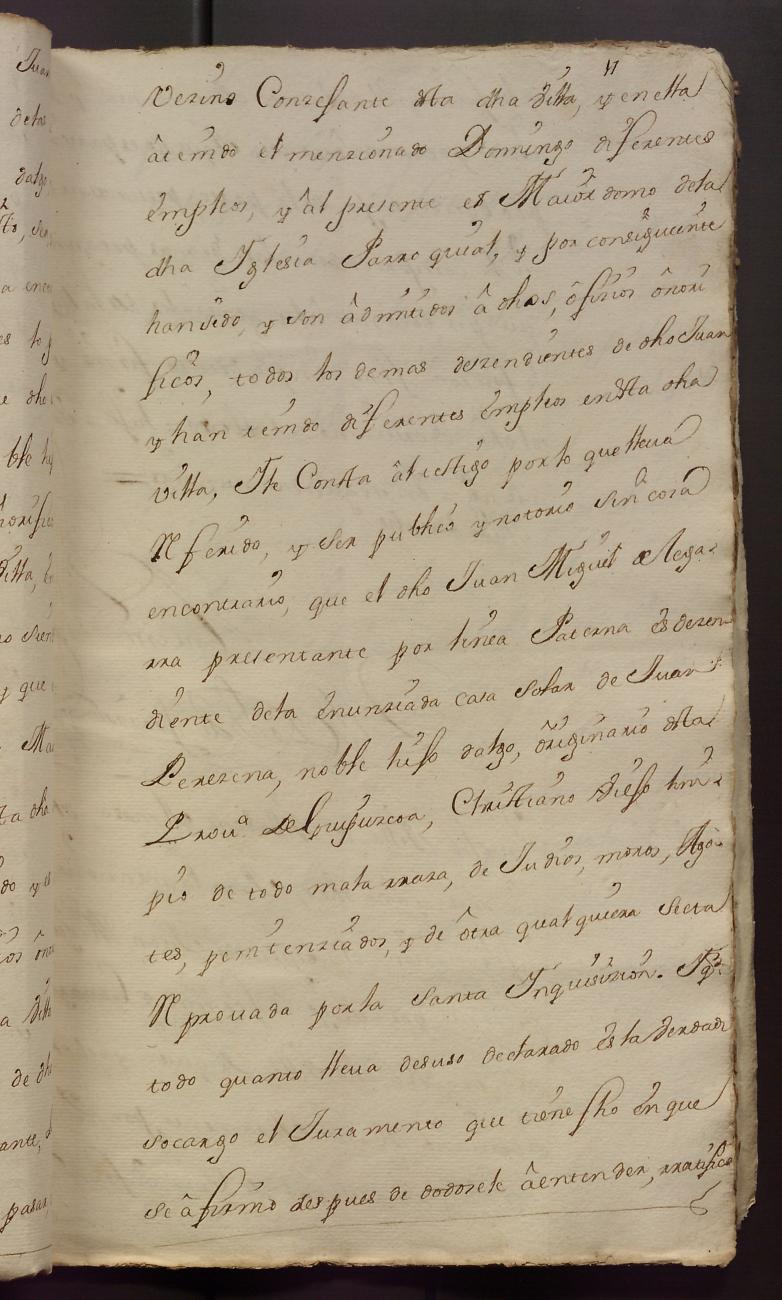 11
Vezino Conzesante dsta dha Villa, y en ella
â tenido el menzionado Domingo diferentes
êmpleos, y âl presente es Maiordomo dela
dha Iglesia Parroquial, y por consiguiente
han sido, y son âdmitidos â dhos, ôfizios ônori
ficos, todos los demas deszendientes de dho Juan
y han tenido diferentes êmpleos en dsta dha
villa, Yle Consta âl testigo por lo que lleva
Referido, y ser publico y notorio sin cosa
encontrario, que el dho Juan Miguel de Legar
rra presentante por linea Paterna es deszen
diente dela ênunziada casa solar de Juan
Perezena, noble hijo dalgo, ôriginario dsta
Prou.ª de Guipuzcoa, Christiano viejo lim
pio de todo mala rraza, de Judios, moros, Ago
tes, penitenziados, y de ôtra qualquiera secta
Reprouada por la santa Inquisizion. Y q.
todo quanto lleua desuso declarado es la verdad
socargo el Juramento que tiene fho en que
se âfirmo despues de dadosele âentender, rratifico
Juan
delas
dalgo